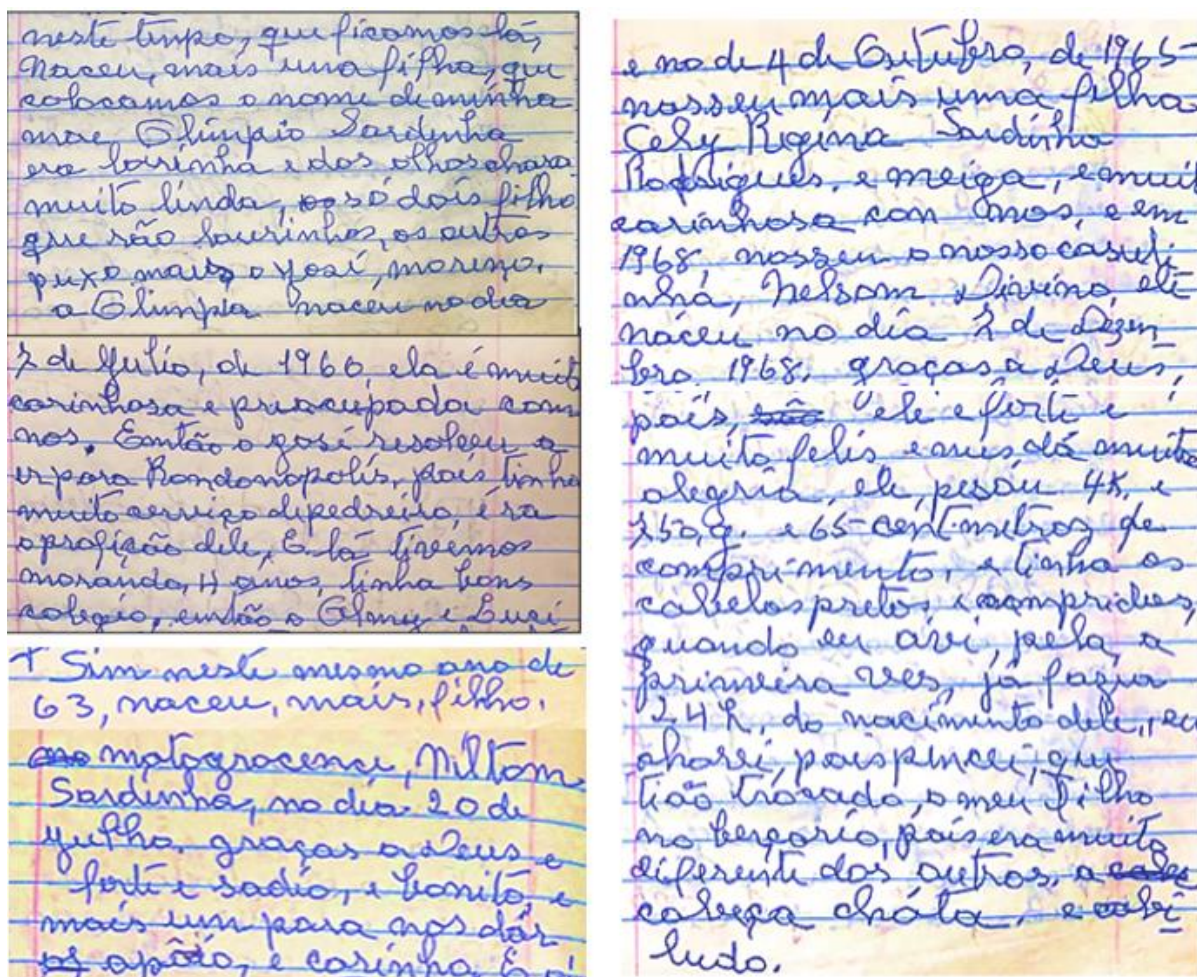 neste tempo, que ficamos lá,
Naceu, mais uma filha, que
colocamos o nome de minha
mae, Olímpio Sardinha
era loirinha e dos olhos
muito linda, só dois filho
que são lourinhos, os outros
puxo mais o José, moreno.
a Olimpia naceu no dia
2 de Julio, de 1960, ela é muit
carinhosa e priacupada com
nos. Emtão o José resolveu a
ir para Rondonopolis, pois tinha
muito cerviço de pedreiro, éra
a profição dele, E lá tivemos
morando, 4 anos, tinha bons
colegio, emtão o Elmy e Luci
+ Sim neste mesmo ano de
63, naceu, mais, filho.
matogrocence, Niltom
Sardinha, no dia 20 de
Julho. graças a Deus e
forti e sadio, e bonito, e
mais um para nos dár
apoio, e carinho. E a
e no de 4 de Outubro, de 1965
nasseu mais uma filha
Cely Regina Sardinha
Rodrigues. e meiga, e muit
carinhosa con nos, e em
1968, nasseu o nosso cásuli
nhá, Nelsom Divino, ele
náceu no dia 2 de Dezem
bro 1968. graças a Deus,
pois, são ele e forti e
muito felis e nus dá muita
alegria, ele, pesou 4K, e
250,g. e 65 centimetroz de
comprimento, e tinha os
cabelos pretos e compridos,
quando eu ávi, pela, a
primeira ves, já fazia
24h, do nacimento dele, eu
chorei, pois pincei, que
tiáõ trocado, o meu filho
no berçario, pois era muito
diferente dos outros, a cabe
cabeça cháta, e cabi
ludo.